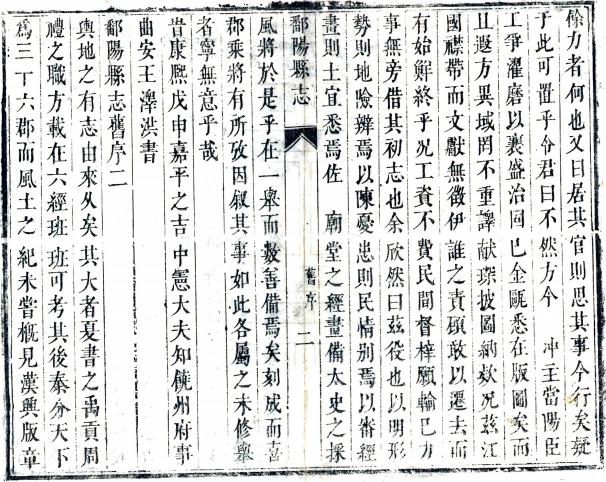 餘力者何也又曰居其官則思其事今行矣疑
于此可置乎分君曰不然方今 冲主當陽臣
工爭濯磨以襄盛治固已金甌悉在版圖矣而
且遐方異域罔不重譯献琛披圖納欵况兹江
國襟帶而文獻無徵伊誰之責頋敢以遷去而
有始鮮終乎况工資不費民間督梓願輸巳力
事無旁借其初志也余欣然曰兹役也以明形
勢則地險辨焉以陳憂患則民情别焉以審經
畫則土宜悉焉佐 廟堂之經畫備太史之採
鄱陽縣志 舊序 二
風將於是乎在一舉而數善備焉矣刻成而喜
郡乘將有所攷因叙其事如此各屬之未修舉
者寧無意乎哉
昔康熙戊申嘉平之吉中憲大夫知饒州府事
曲安王澤洪書
鄱陽縣志舊序二
輿地之有志由來久矣其大者夏書之禹貢周
禮之職方載在六經班班可考其後秦分天下
爲三十六郡而風土之紀未嘗概見漢興版章